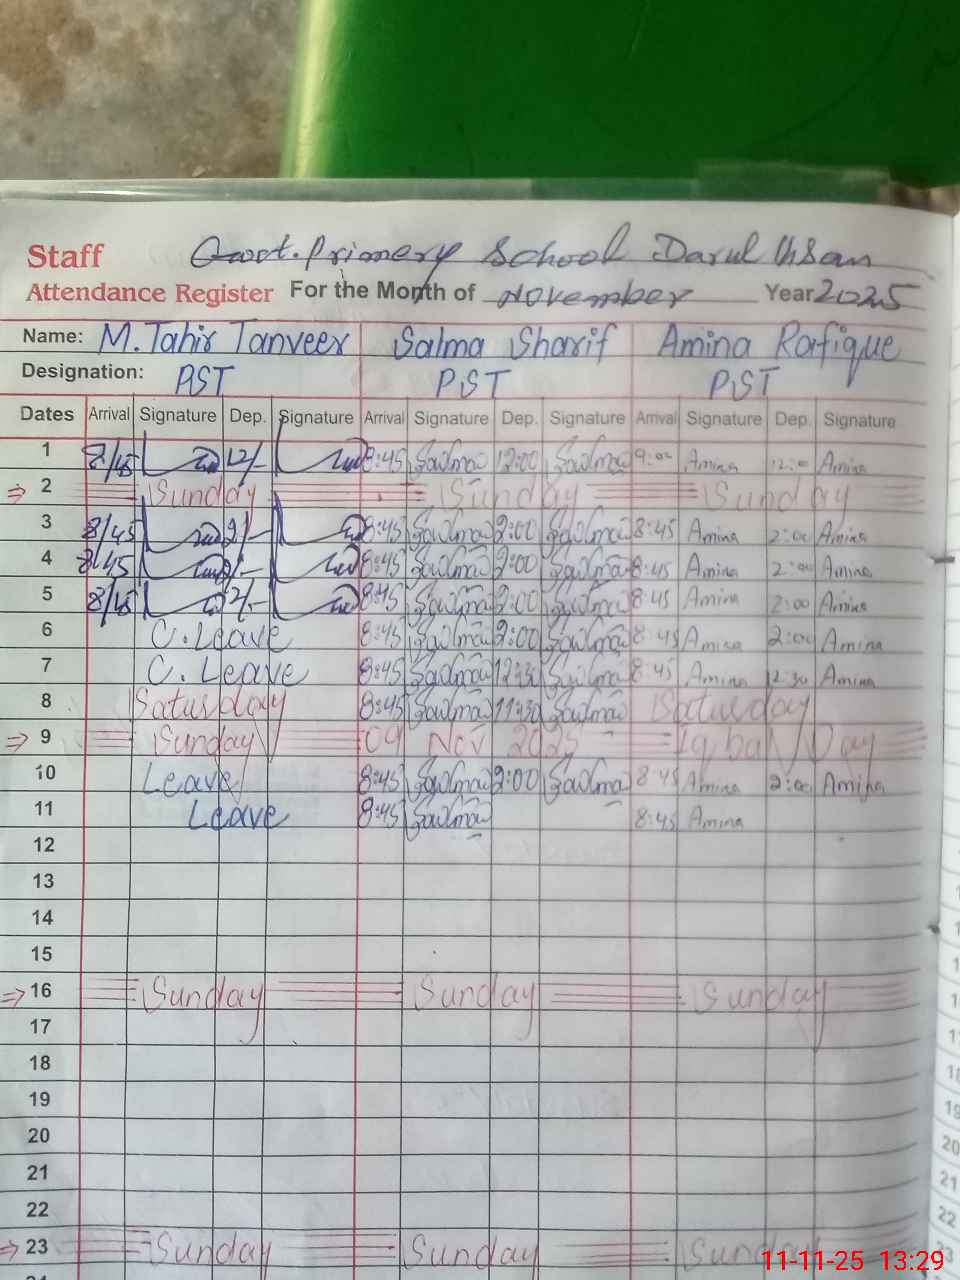 Staff Govt. Primery School Darul Ihsan
Attendance Register For the Month of November Year 2025
Name: M. Tahir Tanveer Salma Sharif Amina Rafique
Designation: PST PST PST
Dates Arrival Signature Dep. Signature Arrival Signature Dep. Signature Arrival Signature Dep. Signature
1 8/45 12/- 8:45 Salma 12:00 Salma 9:00 Amina 12:00 Amina
⇒ 2 Sunday Sunday Sunday
3 8/45 2/- 8:45 Salma 2:00 Salma 8:45 Amina 2:00 Amina
4 8/45 2/- 8:45 Salma 2:00 Salma 8:45 Amina 2:00 Amina
5 8/45 2/- 8:45 Salma 2:00 Salma 8:45 Amina 2:00 Amina
6 C. Leave 8:45 Salma 2:00 Salma 8:45 Amina 2:00 Amina
7 C. Leave 8:45 Salma 12:30 Salma 8:45 Amina 12:30 Amina
8 Saturday 8:45 Salma 11:30 Salma Saturday
⇒ 9 Sunday 09 Nov 2025 Iqbal Day
10 Leave 8:45 Salma 2:00 Salma 8:45 Amina 2:00 Amina
11 Leave 8:45 Salma 8:45 Amina
12
13
14
15
⇒ 16 Sunday Sunday Sunday
17
18
19
20
21
22
⇒ 23 Sunday Sunday Sunday
11-11-25 13:29